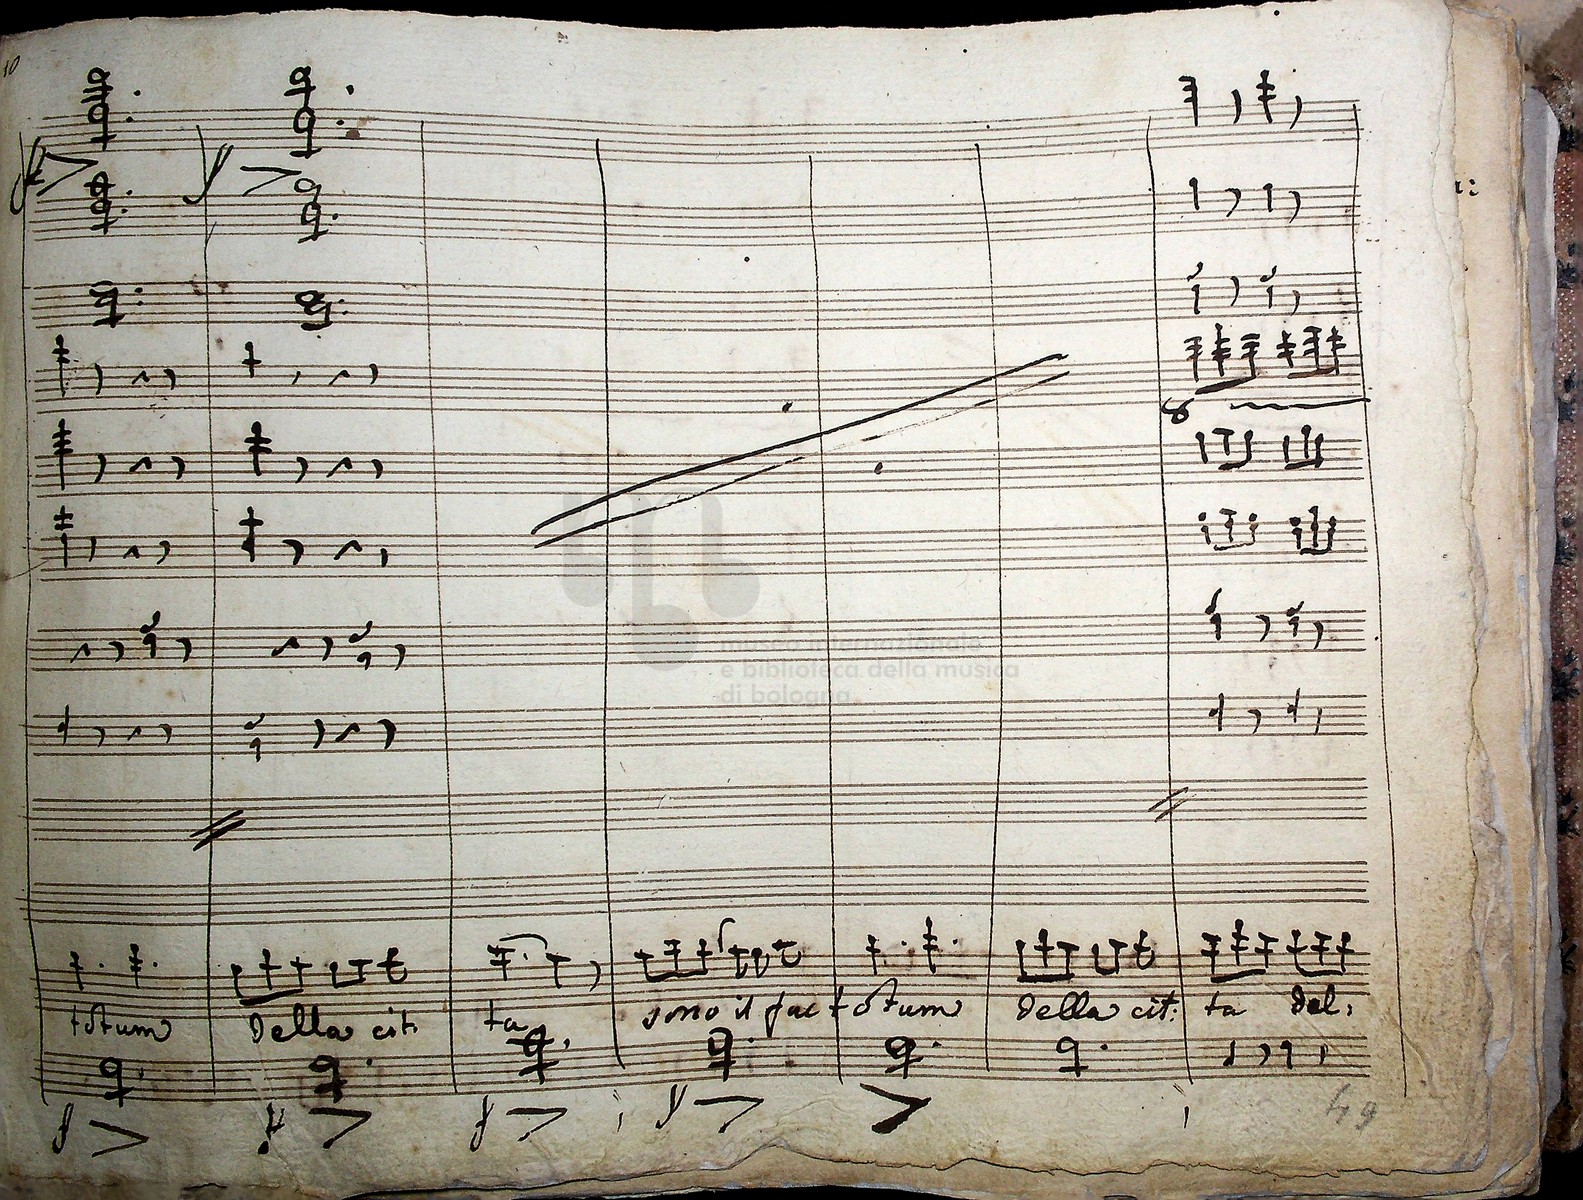 10
8
totum della cit ta sono il fac totum della cit: ta del:
museo internazionale
e biblioteca della musica
di bologna
49